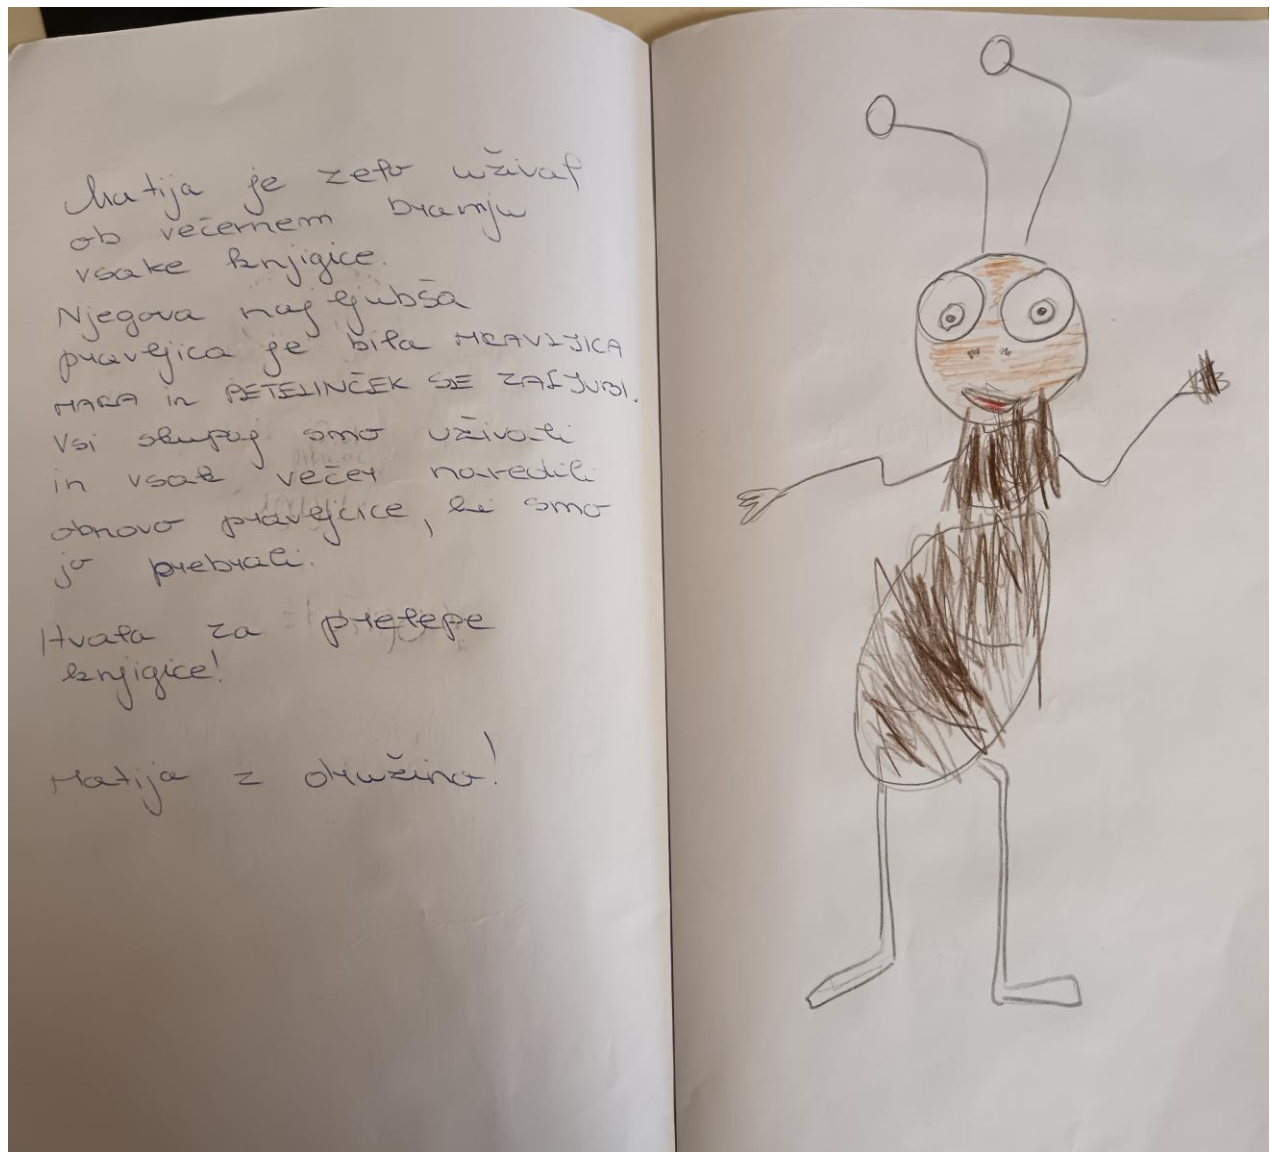 Matija je zelo užival
ob večernem branju
vsake knjigice.
Njegova najljubša
pravljica je bila MRAVLJICA
MARA in PETELINČEK SE ZALJUBI.
Vsi skupaj smo uživali
in vsak večer naredili
obnovo pravljicice, ki smo
jo prebrali.
Hvala za prelepe
knjigice!
Matija z družino!